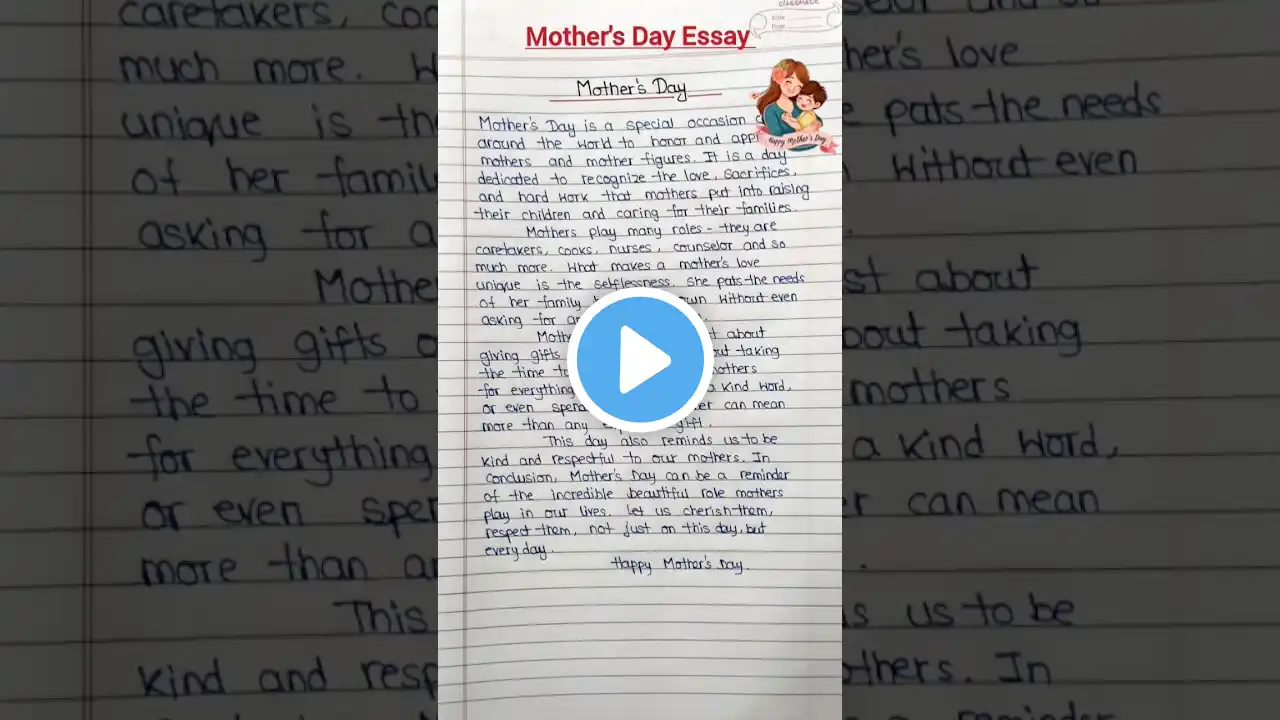 Mother's Day Essay
Date
Page
Mother's Day
Mother's Day is a special occasion
around the world to honor and
mothers and mother figures. It is a day
Happy Mother's Day
dedicated to recognize the love, sacrifices,
and hard work that mothers put into raising
their children and caring for their families.
Mothers play many roles - they are
caretakers, cooks, nurses, counselor and so
much more. What makes a mother's love
unique is the selflessness. She pats the needs
of her family own without even
asking for
about
giving gifts taking
the time to mothers
for everything a kind word,
or even can mean
more than any gift.
This day also reminds us to be
kind and respectful to our mothers. In
conclusion, Mother's Day can be a reminder
of the incredible beautiful role mothers
play in our lives. Let us cherish them,
respect them, not just on this day, but
every day.
Happy Mother's Day.